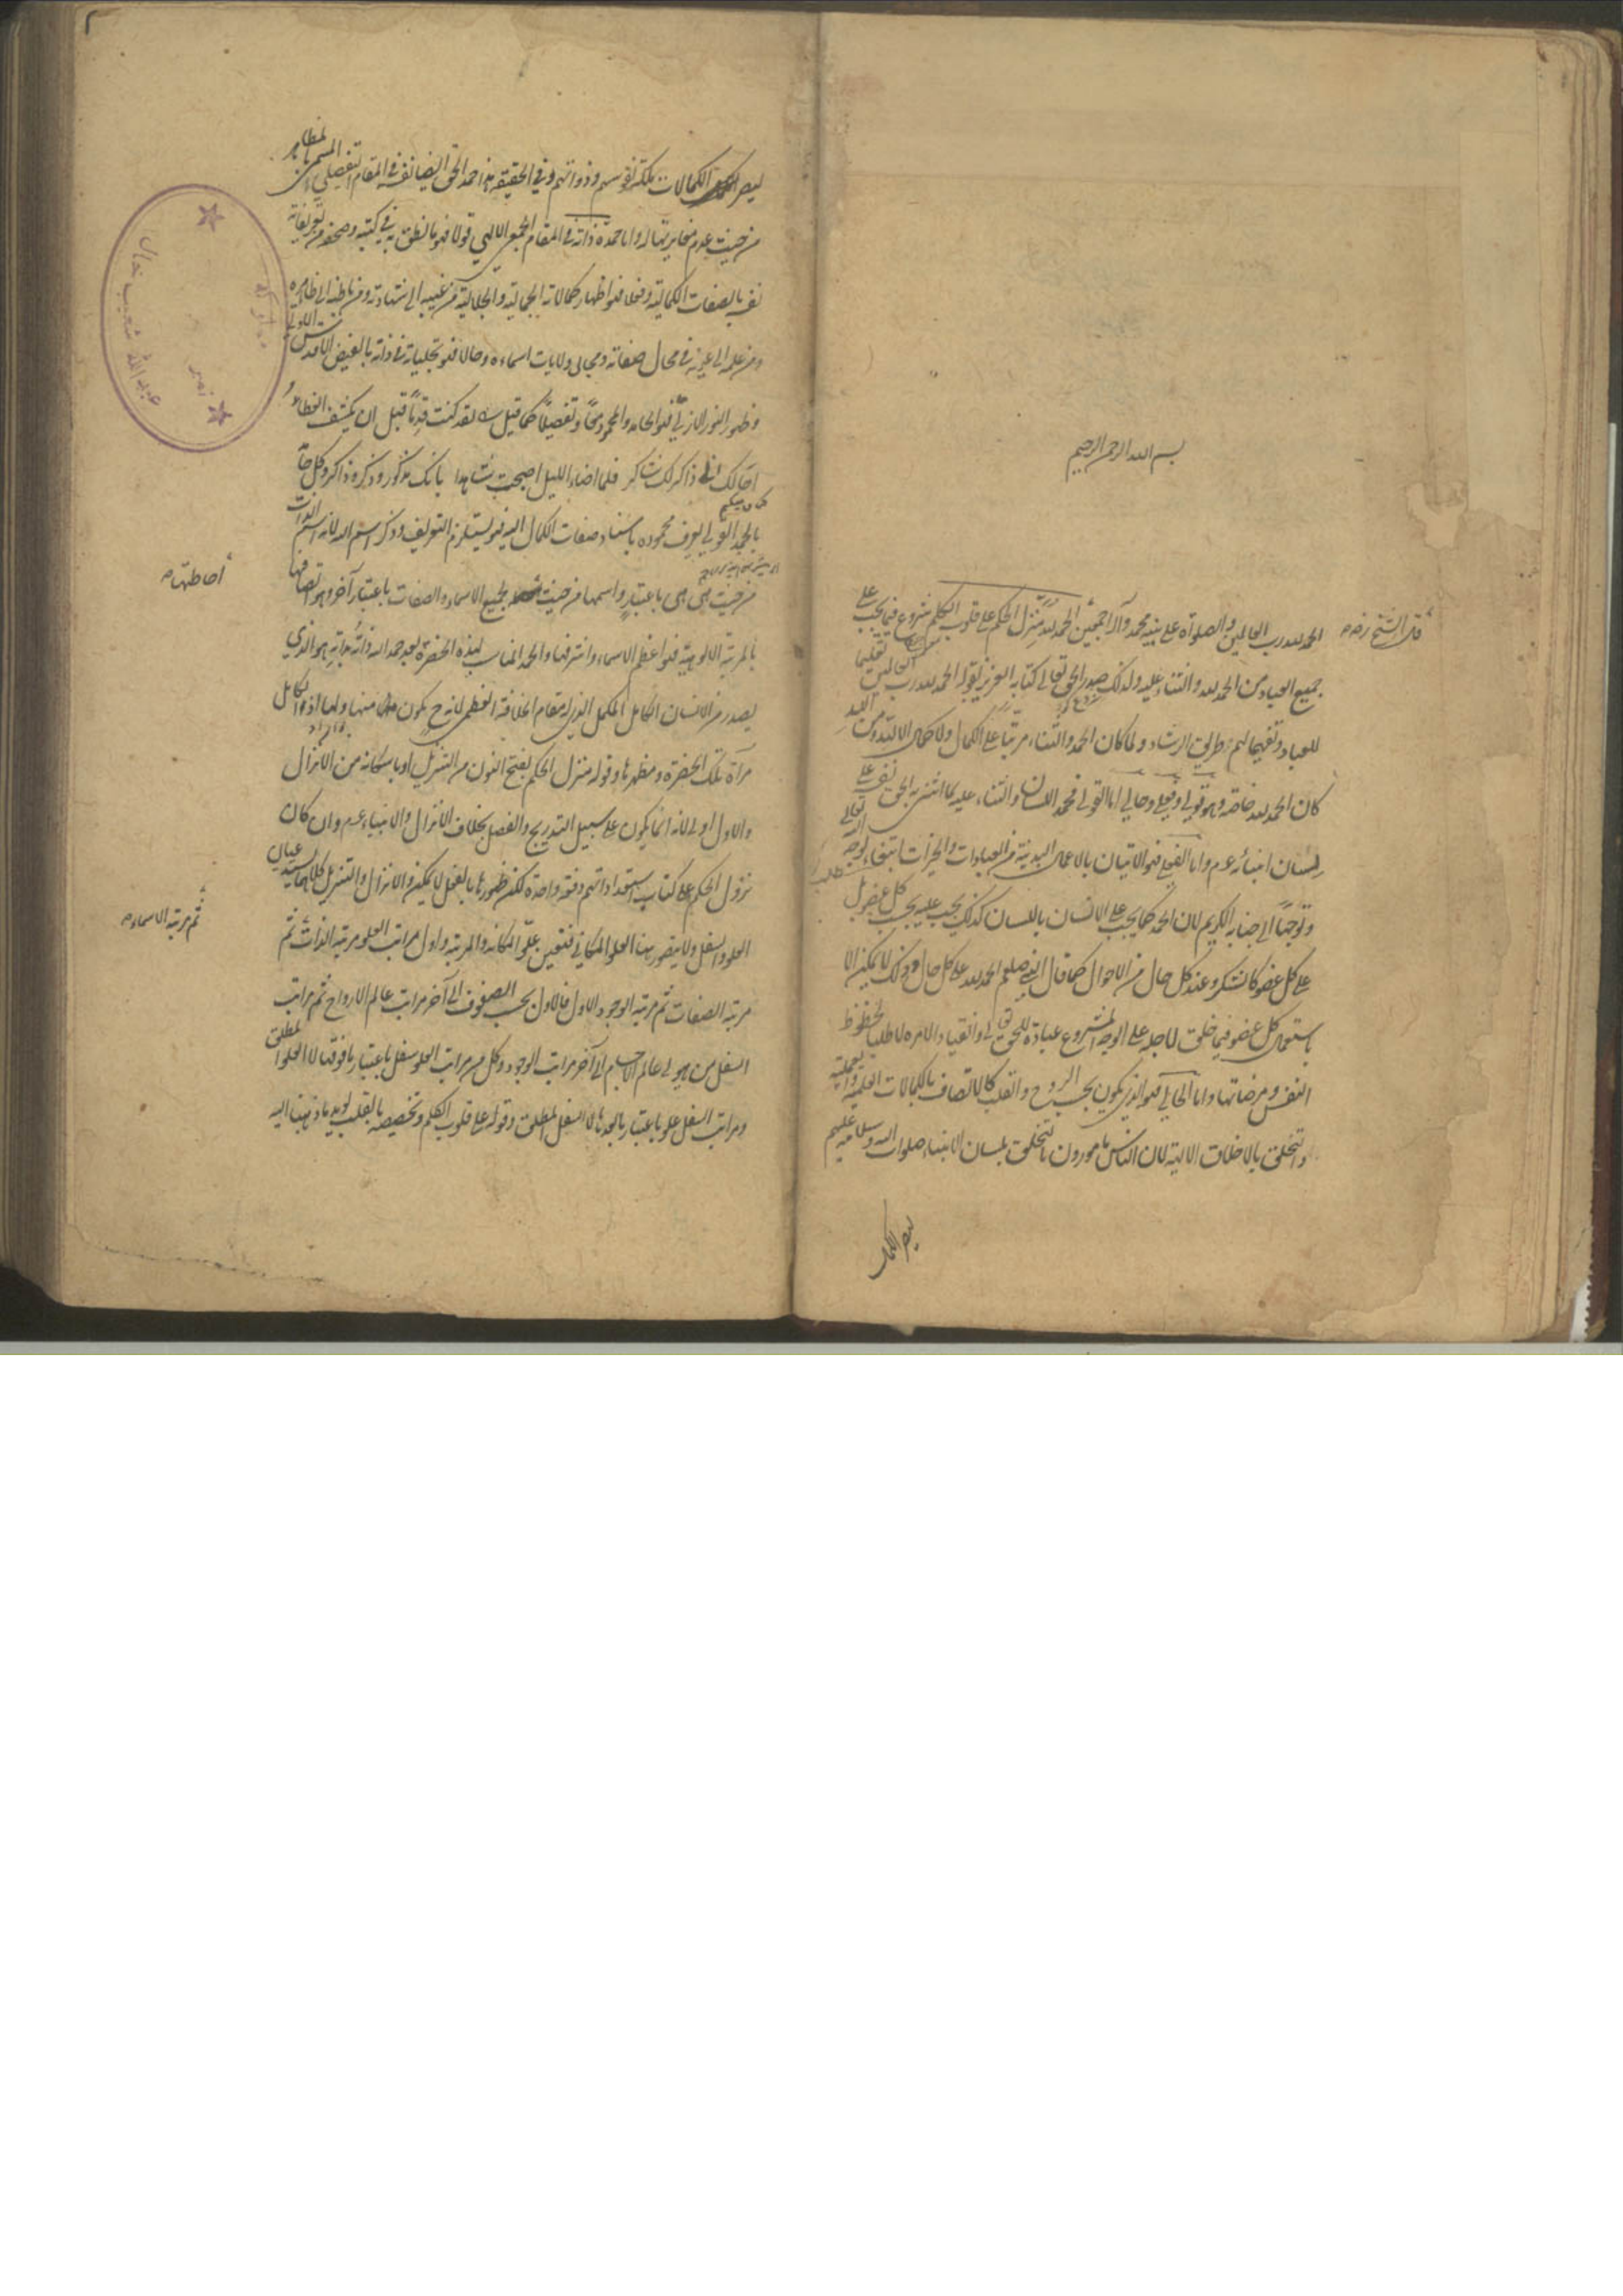 بسم الله الرحمن الرحيم
قال الشيخ رضه
الحمد لله رب العالمين والصلوة على نبيه محمد وآله اجمعين الحمد لله منزل الحكم على قلوب الكلم شروع فيما يجب على
جميع العباد من الحمد لله والثناء عليه ولذلك صدر الحق تعالى كتابه العزيز بقوله الحمد لله رب العالمين تعليما
للعباد وتفهيما لهم طريق الرشاد ولما كان الحمد والثناء مرتبا على الكمال ولا كمال الا لله ومن الله
كان الحمد لله خاصة وهو قولي وفعلي وحالي اما القولي فحمد اللسان والثناء عليه بما اثنى به الحق نفسه على
لسان انبيائه عم واما الفعلي فهو الاتيان بالاعمال البدنية من العبادات والخيرات ابتغاء لوجه الله تعالى
وتوجها الى جنابه الكريم لان الحمد كما يجب على الانسان باللسان كذلك يجب عليه بحسب كل عضو بل
على كل عضو كالشكر وعند كل حال من الاحوال كما قال النبي صلعم الحمد لله على كل حال وذلك لا يمكن الا
باستعمال كل عضو فيما خلق لاجله على الوجه المشروع عبادة للحق تعالى وانقيادا لامره لا طلبا لحظوظ
النفس ومرضاتها واما الحالي فهو الذي يكون بحسب الروح والقلب كالاتصاف بالكمالات العلمية والعملية
والتخلق بالاخلاق الالهية لان الناس مامورون بالتخلق بلسان الانبياء صلوات الله وسلامه عليهم
ليصير الكمال
ليصير الكمالات ملكة نفوسهم وذواتهم وفي الحقيقة هذا حمد الحق ايضا نفسه في المقام التفصيلي المسمى بالمظاهر
من حيث عدم مغايرتها له واما حمده ذاته في المقام الجمعي الالهي قولا فهو ما نطق به في كتبه وصحفه من تعريفاته
نفسه بالصفات الكمالية وفعلا فهو اظهار كمالاته الجمالية والجلالية من غيبه الى شهادته ومن باطنه الى ظاهره
ومن علمه الى عينه في مجالي صفاته ومحال ولايات اسمائه وحالا فهو تجلياته في ذاته بالفيض الاقدس الاولي
وظهور النور الازلي فهو الحامد والمحمود جمعا وتفصيلا كما قيل لقد كنت قدما قبل ان يكشف الغطا
اخالك اني ذاكر لك شاكر فلما اضاء الليل اصبحت شاهدا بانك مذكور وذكر وذاكر وكل حامد
بالحمد القولي يعرف محموده باسناد صفات الكمال اليه فهو يستلزم التعريف وذكر اسم الله لانه اسم الذات
من حيث هي هي باعتبار واسمها من حيث بجميع الاسماء والصفات باعتبار آخر وهو اتصافها
احاطتها
بالمرتبة الالوهية فهو اعظم الاسماء واشرفها والحمد المناسب لهذه الحضرة بعد حمد الله ذاته بذاته هو الذي
يصدر من الانسان الكامل المكمل الذي له مقام الخلافة العظمى لانه ح يكون منها ولها اذ الكامل
مرآة تلك الحضرة ومظهرها وقوله منزل الحكم بفتح النون من التنزيل او باسكانه من الانزال
والاول اولى لانه انما يكون على سبيل التدريج والفصل بخلاف الانزال والانبياء عم وان كان
نزول الحكم على كتاب استعداداتهم دفعة واحدة لكن ظهورها بالفعل لا يمكن والانزال والتنزيل كلاهما يستدعيان
العلو والسفل ولا يتصور هنا العلو المكاني فتعين علو المكانة والمرتبة واول مراتب العلو مرتبة الذات ثم
ثم مرتبة الاسماء
مرتبة الصفات ثم مرتبة الوجود الاول فالاول بحسب الصفوف الى آخر مراتب عالم الارواح ثم مراتب
السفل من هيولى عالم الاجسام الى آخر مراتب الوجود وكل من مراتب العلو سفل باعتبار ما فوقها لا العلو المطلق
ومراتب السفل علو باعتبار ما تحتها لا السفل المطلق وقوله على قلوب الكلم وتخصيصه بالقلب يؤيد ما ذهبنا اليه